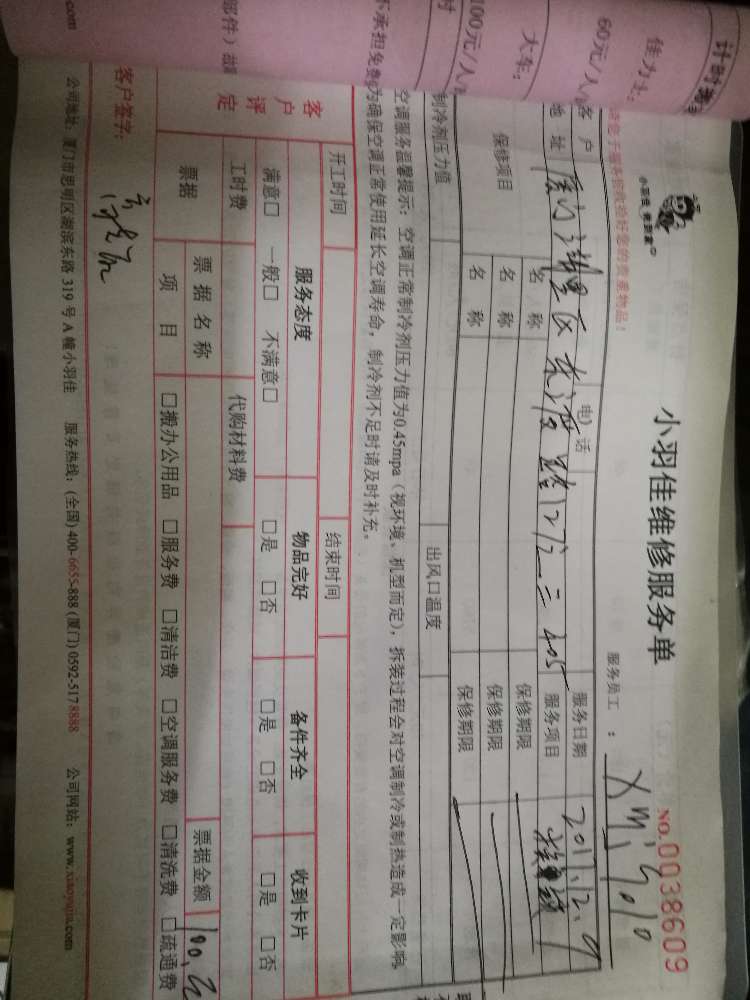 计时
佳为车:
60元/人/
大车:
100元/人/
小羽佳 很到家
小羽佳维修服务单
NO.0038609
服务员工 : Xmj5010
请您于服务前收拾好您的贵重物品!
客 户
电 话
服务日期
2017.12.9
地 址
服务项目
保修项目
名 称
保修期限
名 称
保修期限
名 称
保修期限
制冷剂压力值
出风口温度
空调服务温馨提示: 空调正常制冷剂压力值为0.45mpa (视环境、机型而定), 拆装过程会对空调制冷或制热造成一定影响
为确保空调正常使用延长空调寿命, 制冷剂不足时请及时补充。
不承担免费
开工时间
结束时间
客户评定
服务态度
物品完好
备件齐全
收到卡片
满意□ 一般□ 不满意□
□是 □否
□是 □否
□是 □否
工时费
代购材料费
票据
票 据 名 称
票据金额
项 目
□搬办公用品 □服务费 □清洁费 □空调服务费 □清洗费 □疏通费
部件)
客户签字:
公司地址: 厦门市思明区湖滨东路 319 号 A 幢小羽佳 服务热线: (全国) 400-6655-888 (厦门) 0592-5178888 公司网站: www.xiaoyujia.com
.com